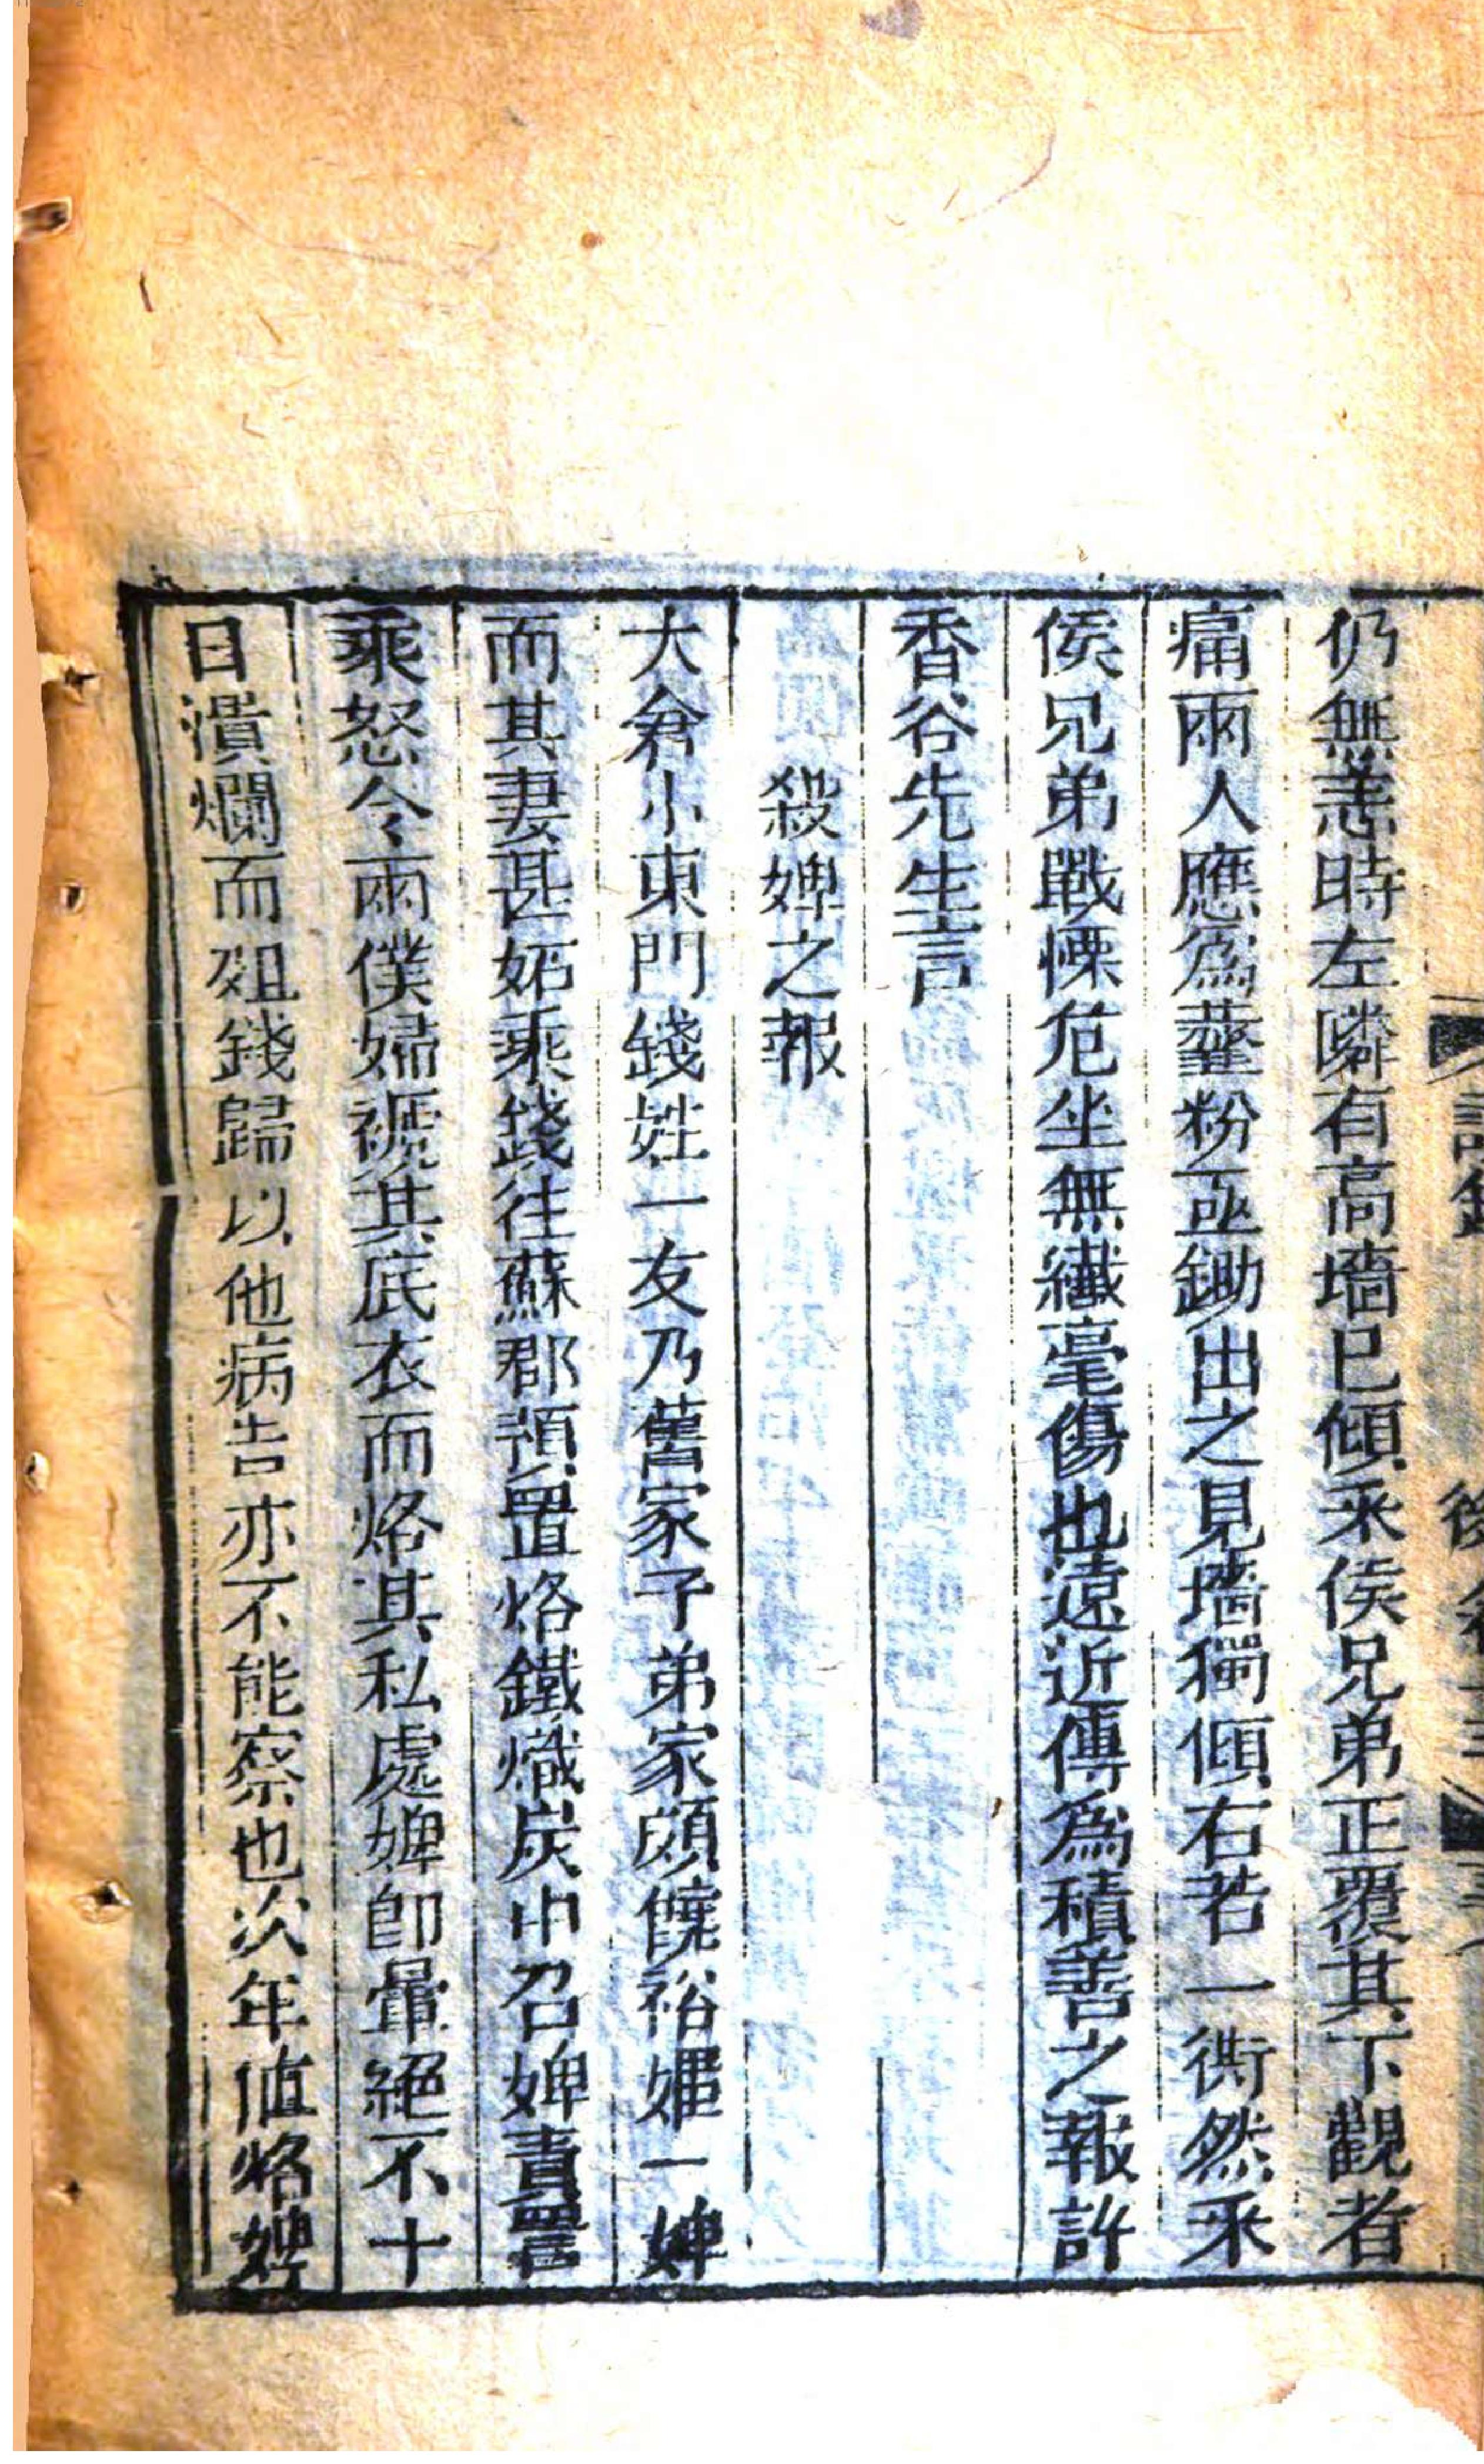 仍無恙時左隣有高墻已傾釆侯兄弟正覆其下觀者
痛兩人應爲虀粉亟鋤出之見墻獨傾右若一衖然釆
侯兄弟戰慄危坐無纖毫傷也遠近傳爲積善之報許
香谷先生言
殺婢之報
大倉小東門錢姓一友乃舊家子弟家頗饒裕婬一婢
而其妻甚妬乘錢往蘇郡預置烙鐵熾炭中召婢責詈
乘怒令兩僕婦褫其底衣而烙其私處婢卽暈絕不十
日潰爛而殂錢歸以他病告亦不能察也次年値烙婢